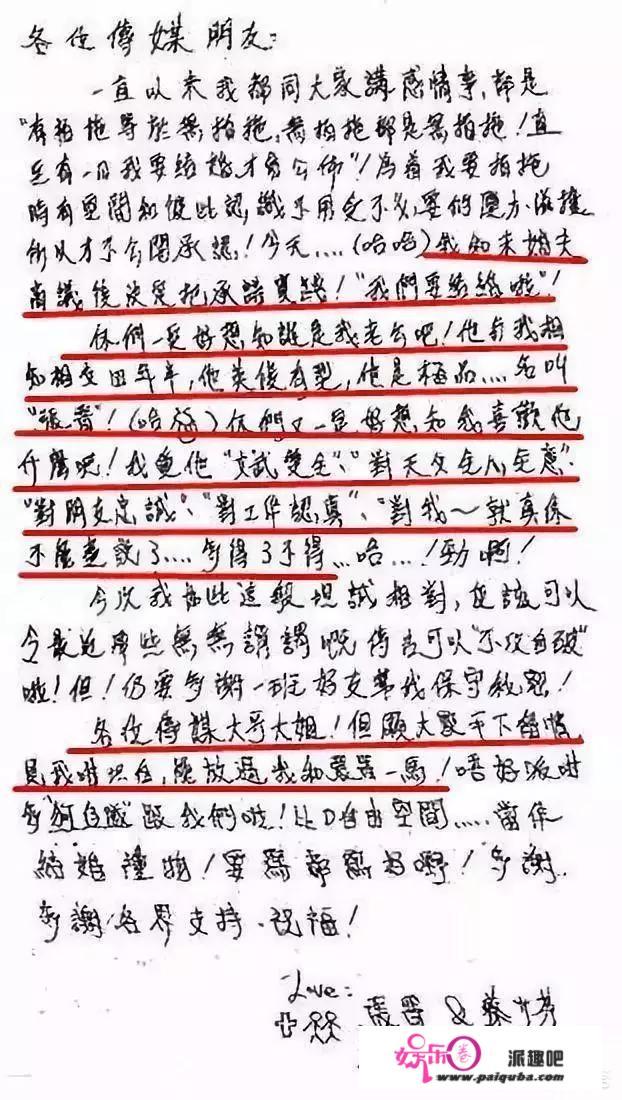 各位傳媒朋友：
一直以來我都同大家講感情事，都是
"有拍拖等於無拍拖，無拍拖即是無拍拖！直
至有一日我要結婚才會公佈"！為着我要拍拖
時有空間和彼此認識
所以才不公開承認！今天....（哈哈）我和未婚夫
商議後決定把承諾實踐！"我們要結婚啦"！
你們一定好想知誰是我老公吧！他与我相
知相交四年半，他英俊有型，他是極品....名叫
"張晋"！（哈哈）你們又一定好想知我喜歡他
什麼呢！我覺他"文武雙全"、"對天父全心全意"
"對朋友忠誠"、"對工作認真"、"對我～就真係
不能盡說了....多得了不得...哈...！勁啊！
今次我如此這般坦誠相對，應該可以
令最近有些無無謂謂嘅傳言可以"不攻自破"
啦！但！仍要多謝一班好友幫我保守秘密！
各位傳媒大哥大姐！但願大家手下留情
見我咁坦白，能放過我和張晋一馬！唔好派咁
多"狗自隊"跟我們啦！比D自由空間.....當作
結婚禮物！要寫都寫好嘢！多謝..
多謝各界支持、祝福！
Love：
張晋 & 蔡少芬
娱乐圈
派趣吧
www.paiquba.com